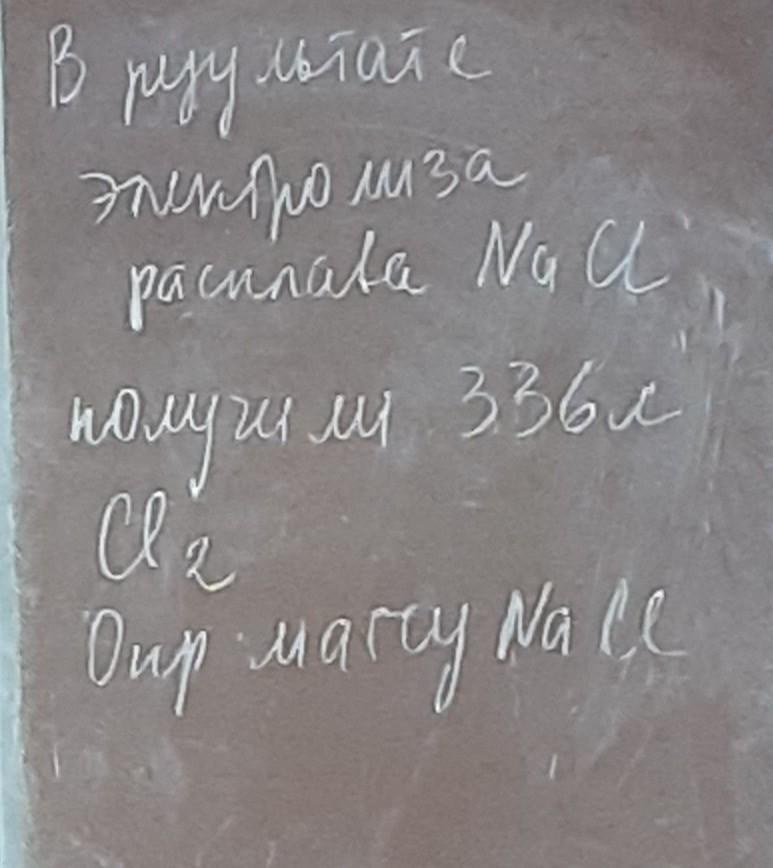 В результате
электролиза
расплава NaCl
получили 336л
Cl2
Опр массу NaCl